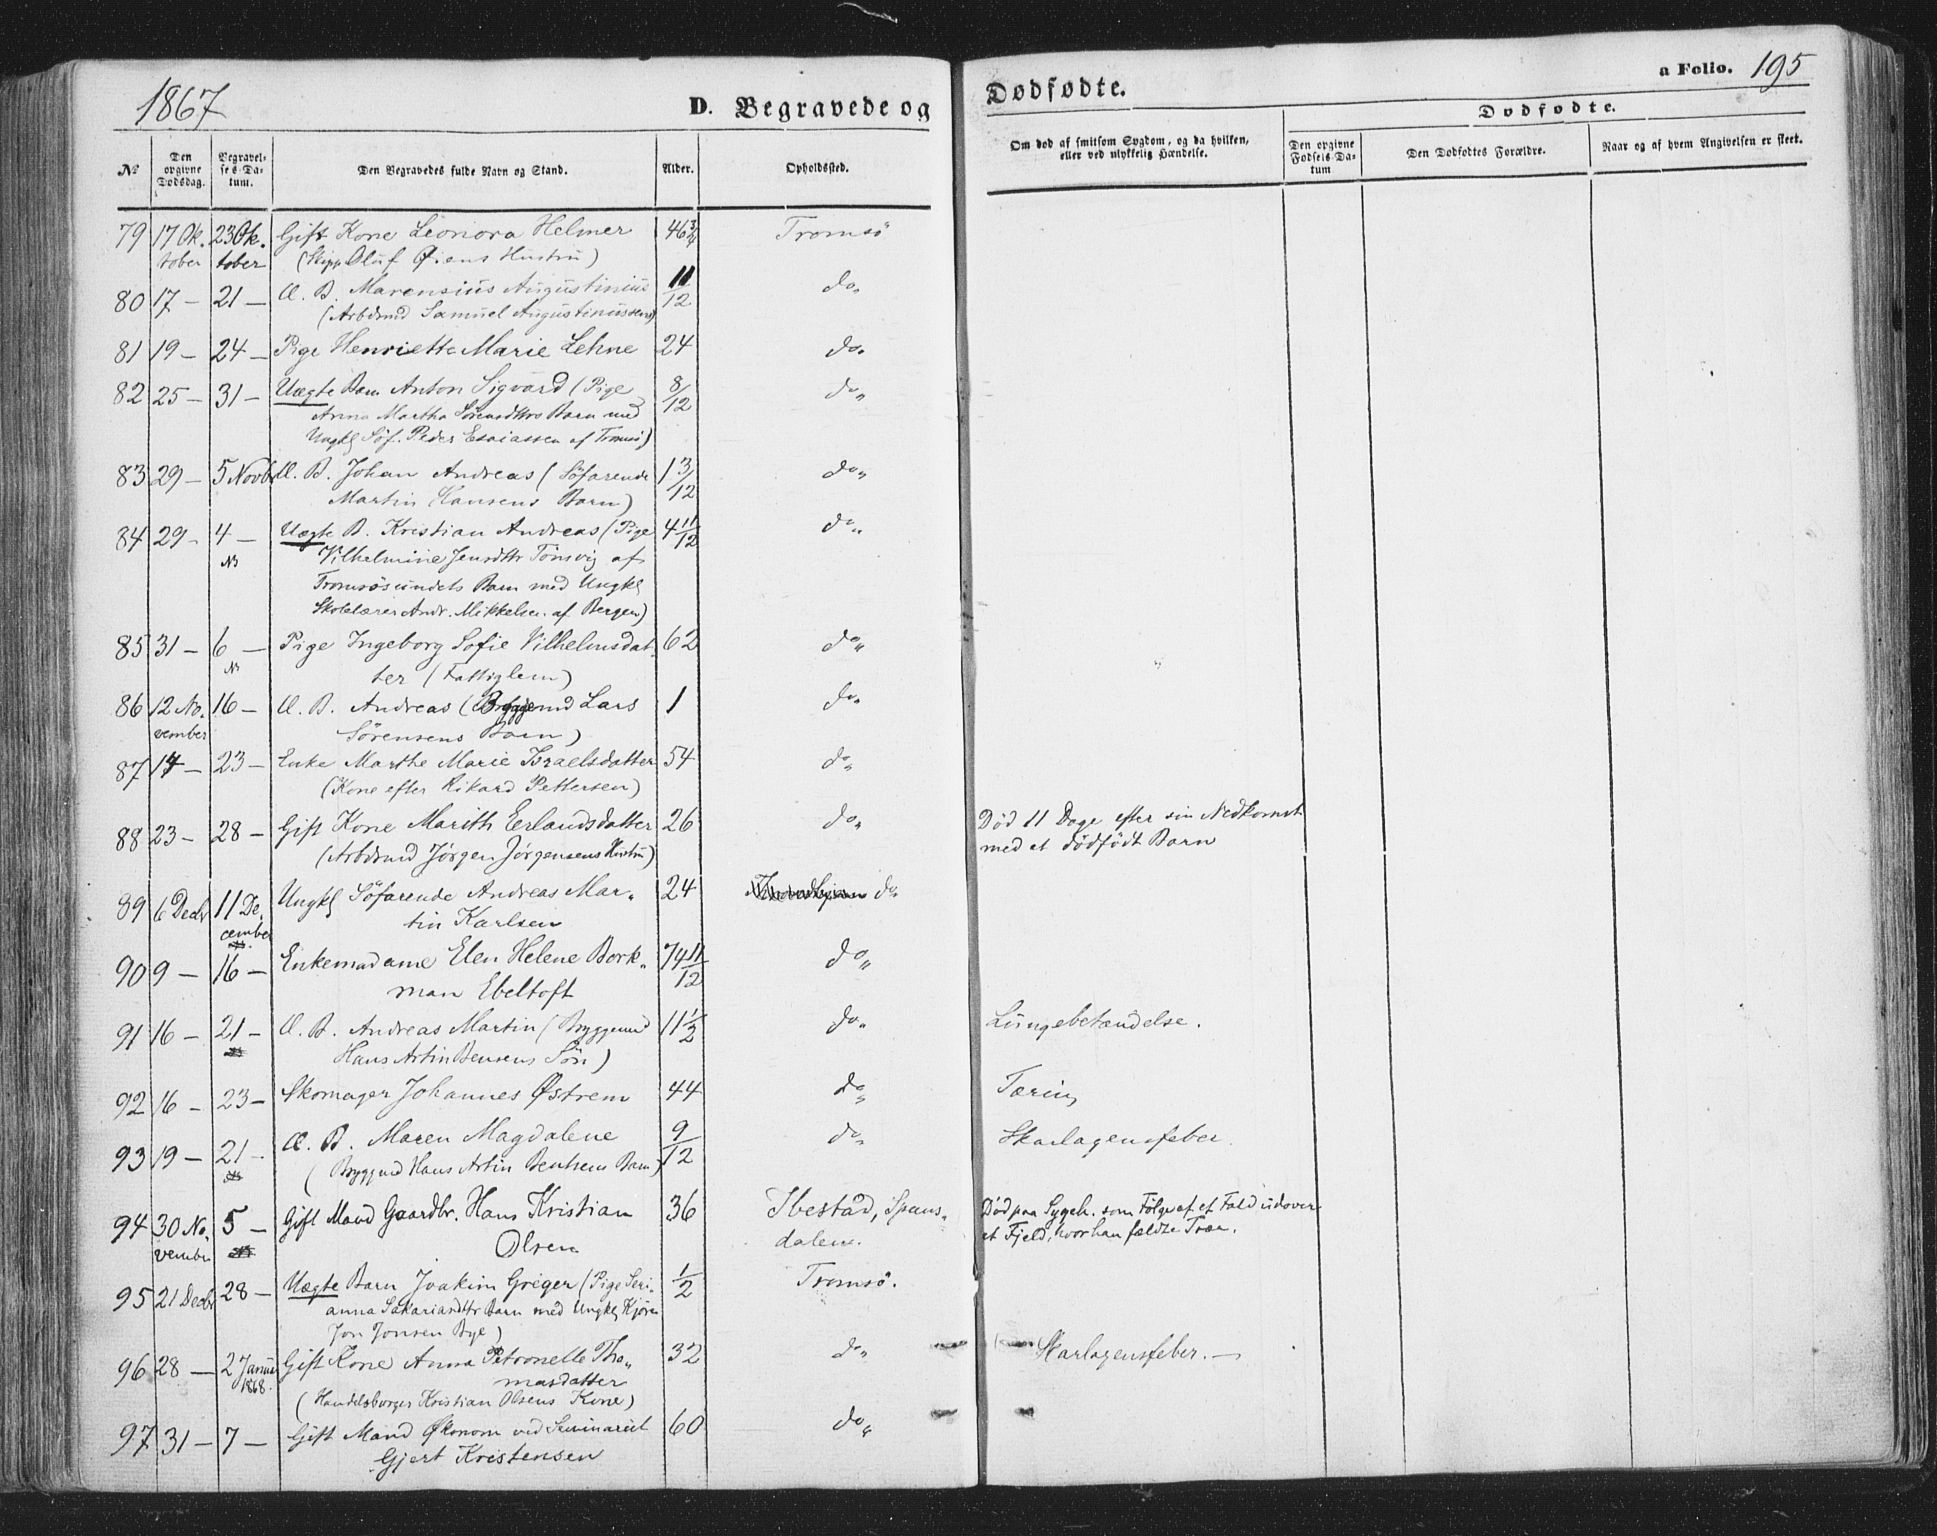 1867
D. Begravede og
Dødfødte.
a Folio. 195
Dødfødte.
No
Den opgivne Dødsdag.
Begravelses-Datum.
Den Begravedes fulde Navn og Stand.
Alder.
Opholdssted.
Om død af smitsom Sygdom, og da hvilken, eller ved ulykkelig Hændelse.
Den opgivne Fødsels-Datum
Den Dødfødtes Forældre.
Naar og af hvem Angivelsen er skeet.
79 17 Ok- 23 Ok- Gift Kone Leonora Helmer 46 3/4 Tromsö
tober tober (Skipp. Oluf Øiens Hustru)
80 17 – 21 – Æ. B. Marensius Augustinius 11/12 do„
(Arbdsmd Samuel Augustinussens)
81 19 – 24 – Pige Henriette Marie Lehne 24 do.
82 25 – 31 – Uægte Barn Anton Sigvard (Pige 8/12 do„
Anna Martha Sörensdtrs Barn med
Ungkl Söf. Peder Esaiassen af Tromsö)
83 29 – 5 Novbr Æ. B. Johan Andreas (Söfarende 1 3/12 do„
Martin Hansens Barn)
84 29 – 4 – Uægte B. Kristian Andreas (Pige 4 11/12 do„
N Vilhelmine Jensdttr Tönsvig af
Tromsösundets Barn med Ungkl
Skolelærer Andr. Mikkelsen af Bergen)
85 31 – 6 – Pige Ingeborg Sofie Vilhelmsdat- 62 do„
N ter (Fattiglem)
86 12 No- 16 – Æ. B. Andreas (Bryggemd Lars 1 do„
vember Sörensens Barn)
87 14 – 23 – Enke Marthe Marie Israelsdatter 54 do„
(Kone efter Rikard Pettersen)
88 23 – 28 – Gift Kone Marith Erlandsdatter 26 do„ Död 11 Dage efter sin Nedkomst
(Arbdsmd Jørgen Jørgensens Hustru) med et dödfödt Barn
89 6 Decbr 11 De- Ungkl Söfarende Andreas Mar- 24 do„
cember tin Karlsen
90 9 – 16 – Enkemadame Elen Helene Bork- 74 11/12 do„
man Ebeltoft
91 16 – 21 – Æ. B. Andreas Martin (Bryggemd 11 1/2 do„ Lungebetændelse.
Hans Artin Bensens Sön)
92 16 – 23 – Skomager Johannes Østrem 44 do„ Tæring
93 19 – 21 – Æ. B. Maren Magdalene 9/12 do„ Skarlagensfeber.
(Bryggmd Hans Artin Bentsens Barn)
94 30 No- 5 – Gift Mand Gaardbr. Hans Kristian 36 Ibestad, Spans- Död paa Sygeh. som Fölge af et Fald udover
vember Olsen dalen. et Fjeld, hvor han fældte Træer.
95 21 Decbr 28 – Uægte Barn Joakim Greger (Pige Seri- 1/2 Tromsö.
anna Sakariasdttr Barn med Ungkl
Jon Jonsen Bye)
96 28 – 2 Januar Gift Kone Anna Petronelle Tho- 32 do„ Skarlagensfeber. –
1868. masdatter
(Handelsborger Kristian Olsens Kone)
97 31 – 7 – Gift Mand Økonom ved Seminariet 60 do„
Gjert Kristensen